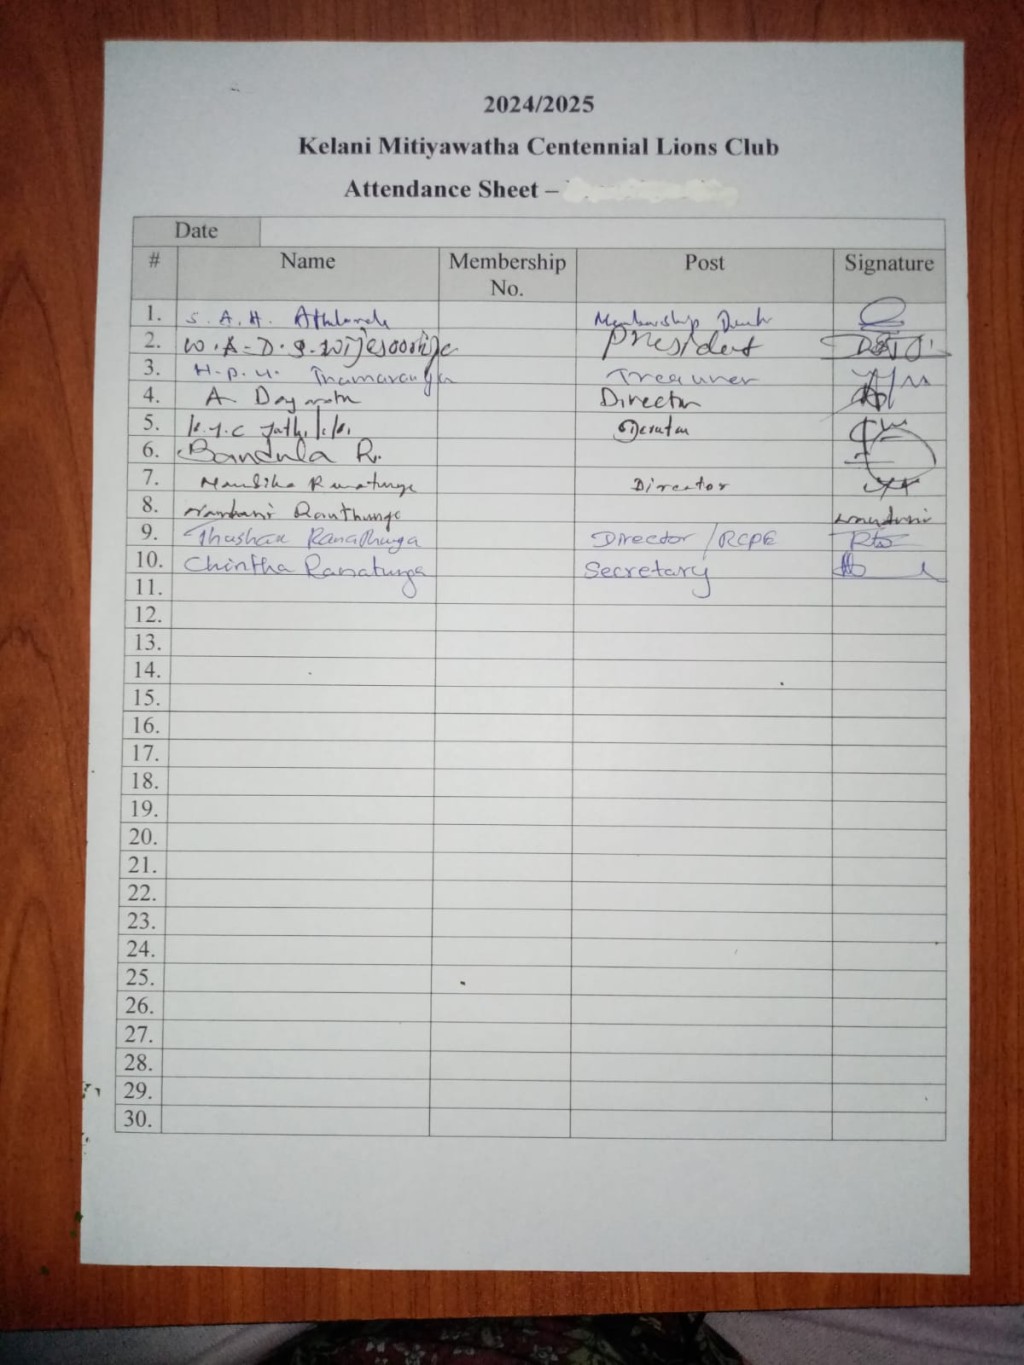 2024/2025
Kelani Mitiyawatha Centennial Lions Club
Attendance Sheet –
Date
# Name Membership No. Post Signature
1. S. A. H. Membership
2. W. A. D. S. Wijesooriya President
3. H. P. U. Thamaranga Treaurer
4. A. Director
5. K. Y. C
6. Bandula R.
7. Director
8. Ranthunge
9. Thushan Ranathunga Director / RCPE
10. Chintha Ranatunga Secretary
11.
12.
13.
14.
15.
16.
17.
18.
19.
20.
21.
22.
23.
24.
25.
26.
27.
28.
29.
30.